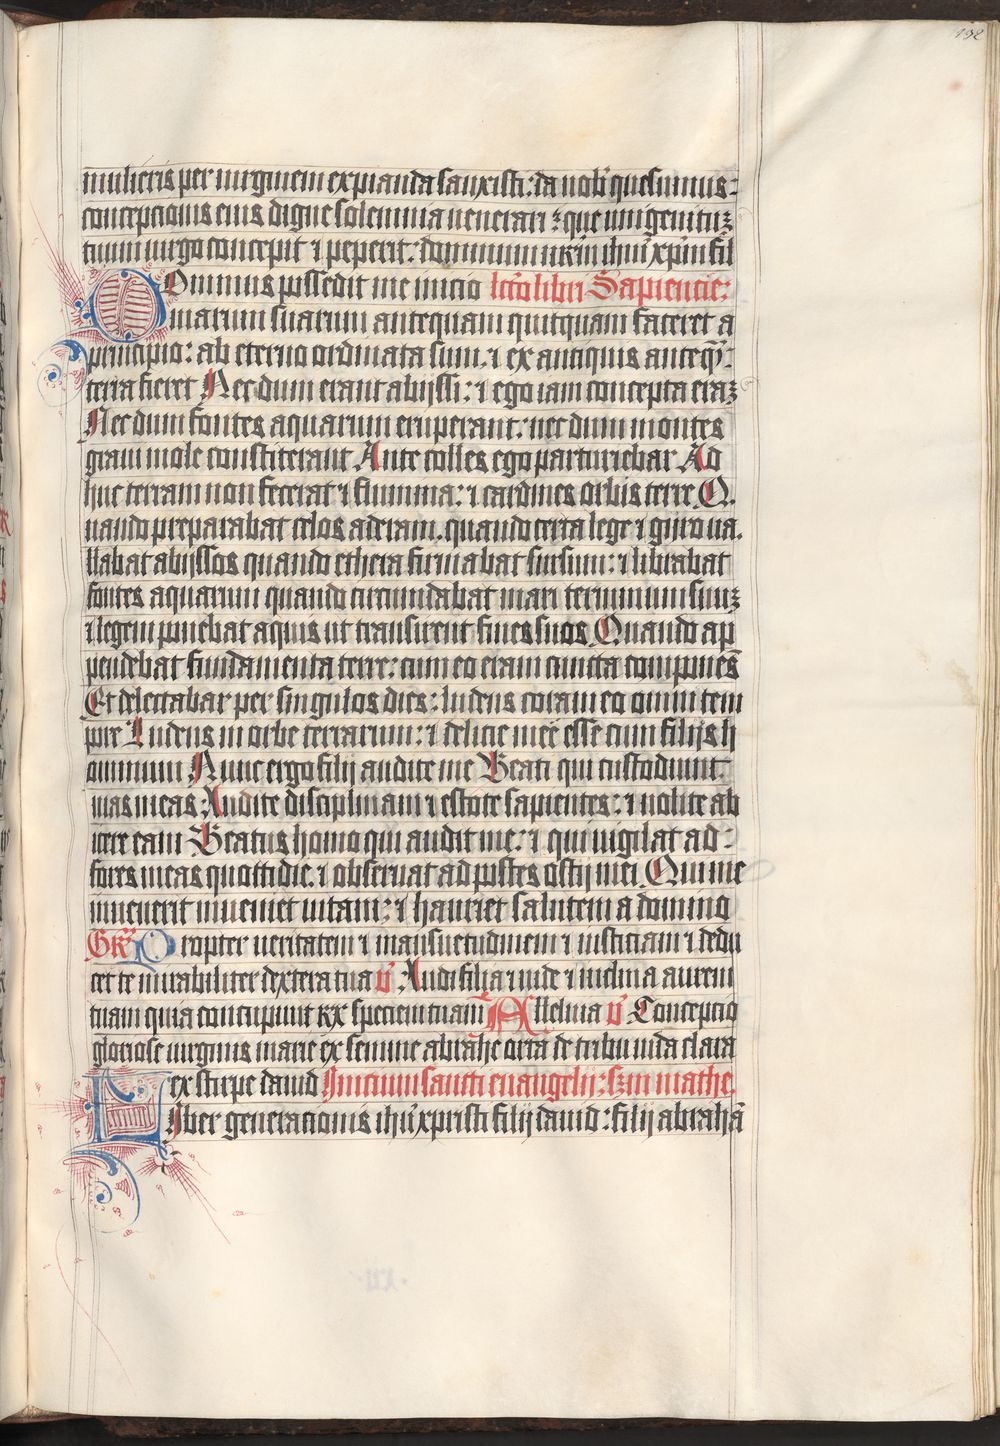 192
mulieris per uirginem expianda sanxisti: da nobis quesumus:
conceptionis eius digne solemnia uenerari: que unigenitum
tuum uirgo concepit ⁊ peperit: dominum nrm̄ ihm̄ xp̄m fil
Dominus possedit me inicio lc̄o libri Sapiencie:
uiarum suarum antequam quitquam faceret a
principio: ab eterno ordinata sum: ⁊ ex antiquis anteq̄ꝫ:
terra fieret Nec dum erant abijssi: ⁊ ego iam concepta eraꝫ
Nec dum fontes aquarum eruperant: nec dum montes
graui mole constiterant Ante colles ego parturiebar Ad
huc terram non fecerat ⁊ flumina: ⁊ cardines orbis terre Q
uando preparabat celos aderam. quando certa lege ⁊ gijro ua
llabat abijssos quando ethera firmabat sursum: ⁊ librabat
fontes aquarum quando circumdabat mari terminum suuꝫ
⁊ legem ponebat aquis ut transirent fines suos Quando ap
pendebat fundamenta terre: cum eo eram cuncta componēs
Et delectabar per singulos dies: ludens coram eo omni tem
pore Ludens in orbe terrarum: ⁊ delicie mee esse cum filijs h
ominum Nunc ergo filij audite me Beati qui custodiunt
uias meas: Audite disciplinam ⁊ estote sapientes: ⁊ nolite ab
icere eam Beatus homo qui audit me: ⁊ qui uigilat ad:
fores meas quottidie. ⁊ obseruat ad postes ostij mei. Qui me
inuenerit inueniet uitam: ⁊ hauriet salutem a domino
Gr̄ Propter ueritatem ⁊ mansuetudinem ⁊ iusticiam ⁊ dedu
cet te mirabiliter dextera tua v̄ Audi filia ⁊ uide ⁊ inclina aurem
tuam quia concupiuit rex speciem tuam Alleluia v̄ Concepcio
gloriose uirginis marie ex semine abrahe orta de tribu iuda clara
ex stirpe dauid Inicium sancti euangelij: sm̄ mathe.
Liber generacionis ihū xpristi filij dauid: filij abrahā